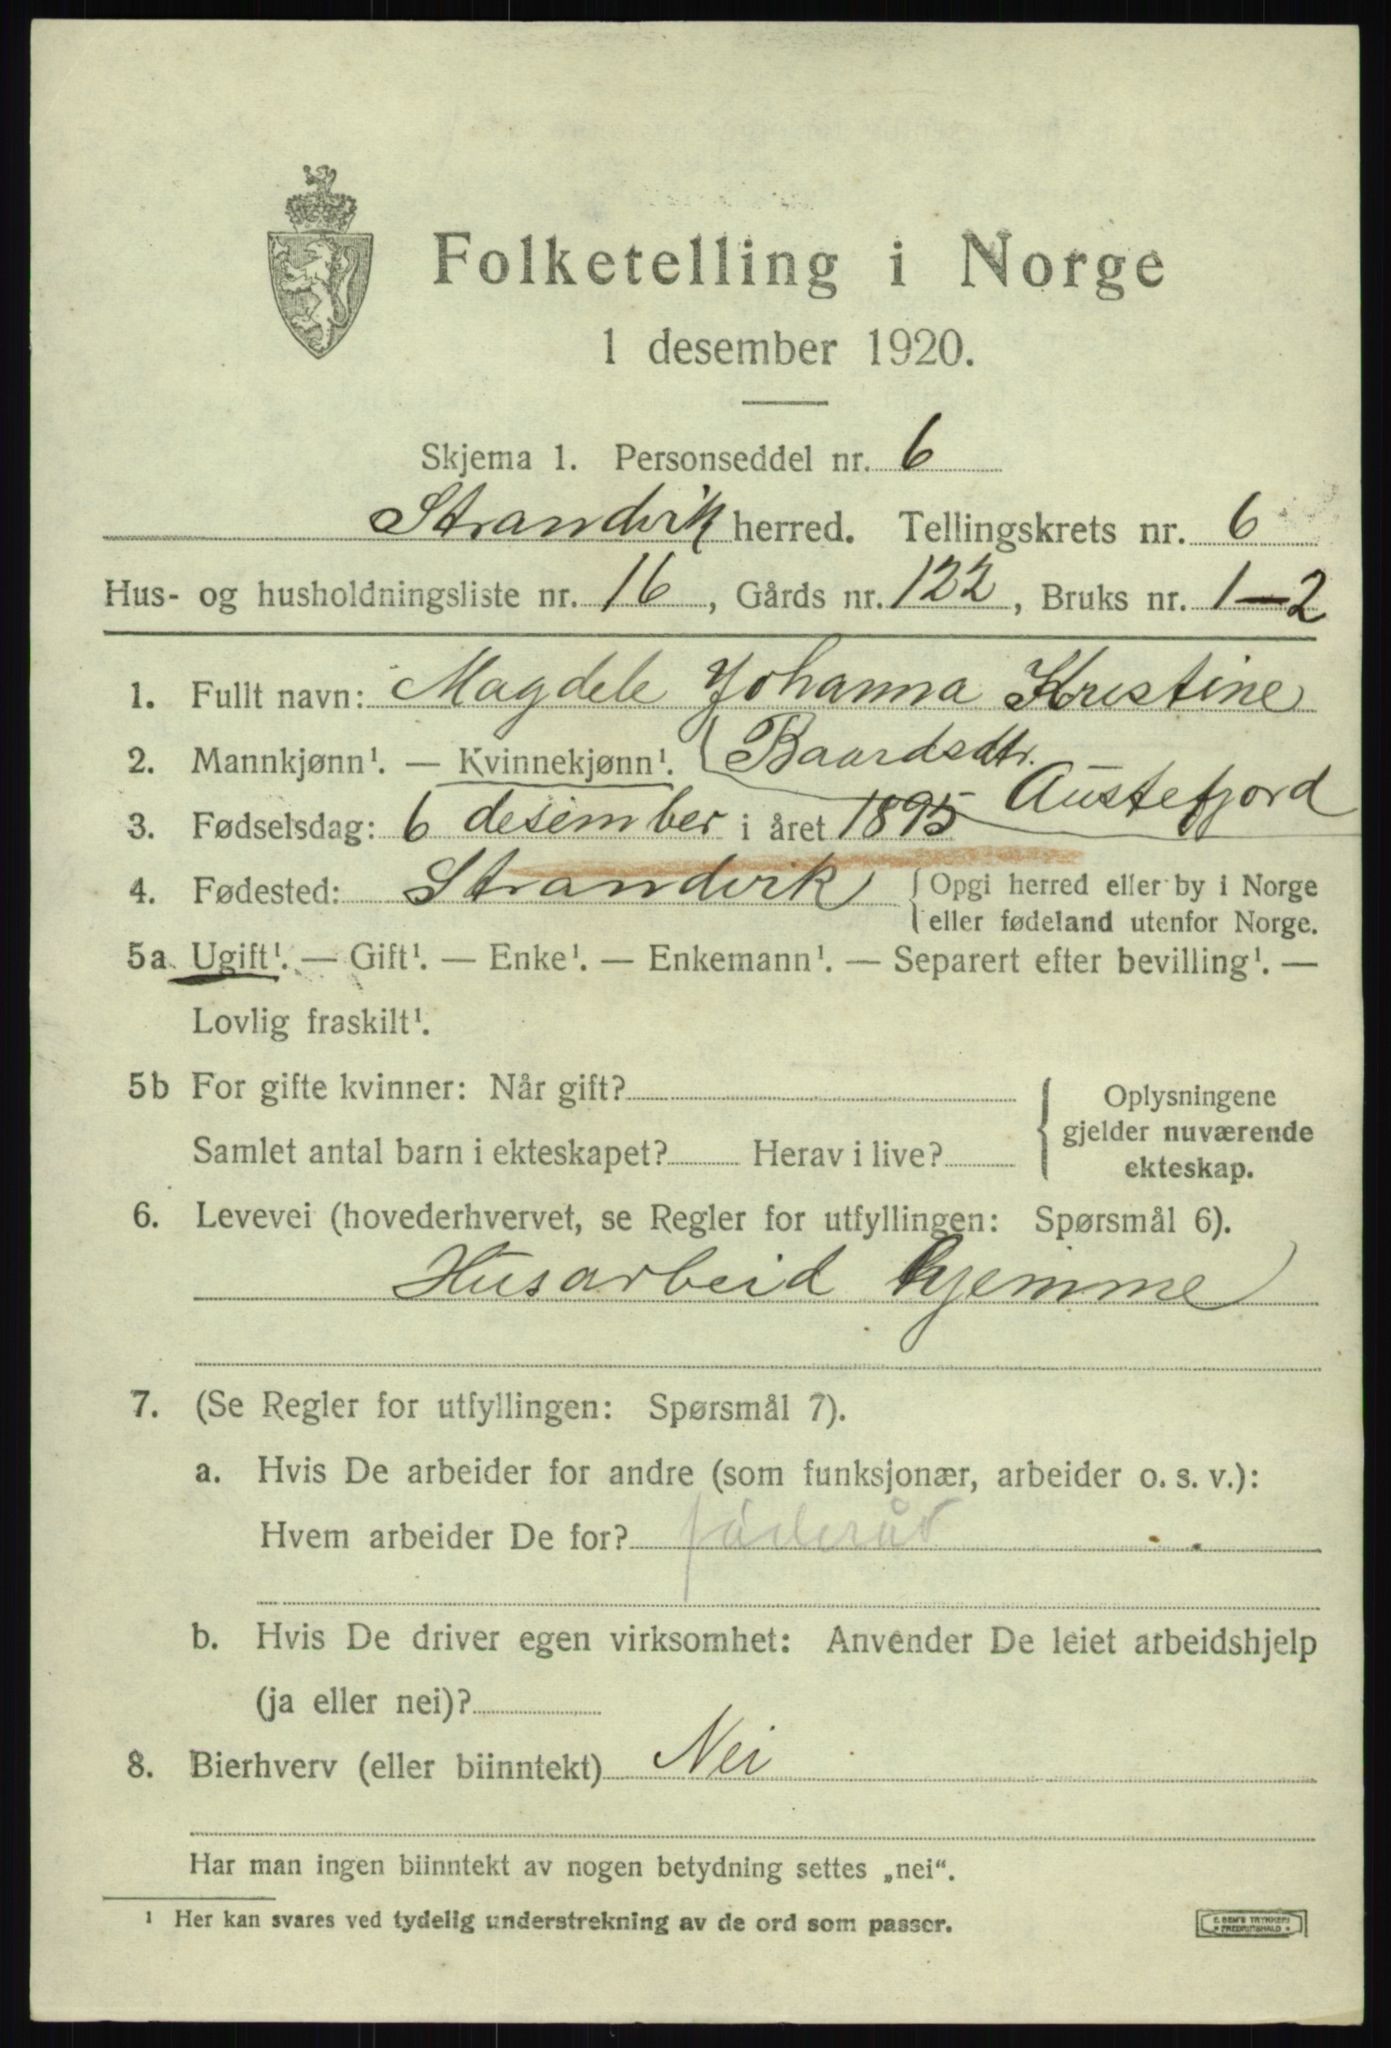 Folketelling i Norge
1 desember 1920.
Skjema 1. Personseddel nr. 6
Strandvik herred. Tellingskrets nr. 6
Hus- og husholdningsliste nr. 16, Gårds nr. 122, Bruks nr. 1-2
1. Fullt navn: Magdele Johanna Kristine
2. Mannkjønn¹. — Kvinnekjønn¹. Baardsdtr. Austefjord
3. Fødselsdag: 6 desember i året 1895
4. Fødested: Strandvik { Opgi herred eller by i Norge
eller fødeland utenfor Norge.
5a Ugift¹. — Gift¹. — Enke¹. — Enkemann¹. — Separert efter bevilling¹. —
Lovlig fraskilt¹.
5b For gifte kvinner: Når gift? { Oplysningene
gjelder nuværende
Samlet antal barn i ekteskapet? Herav i live? ekteskap.
6. Levevei (hovederhvervet, se Regler for utfyllingen: Spørsmål 6).
Husarbeid hjemme
7. (Se Regler for utfyllingen: Spørsmål 7).
a. Hvis De arbeider for andre (som funksjonær, arbeider o. s. v.):
Hvem arbeider De for?
b. Hvis De driver egen virksomhet: Anvender De leiet arbeidshjelp
(ja eller nei)?
8. Bierhverv (eller biinntekt) Nei
Har man ingen biinntekt av nogen betydning settes „nei“.
¹ Her kan svares ved tydelig understrekning av de ord som passer.